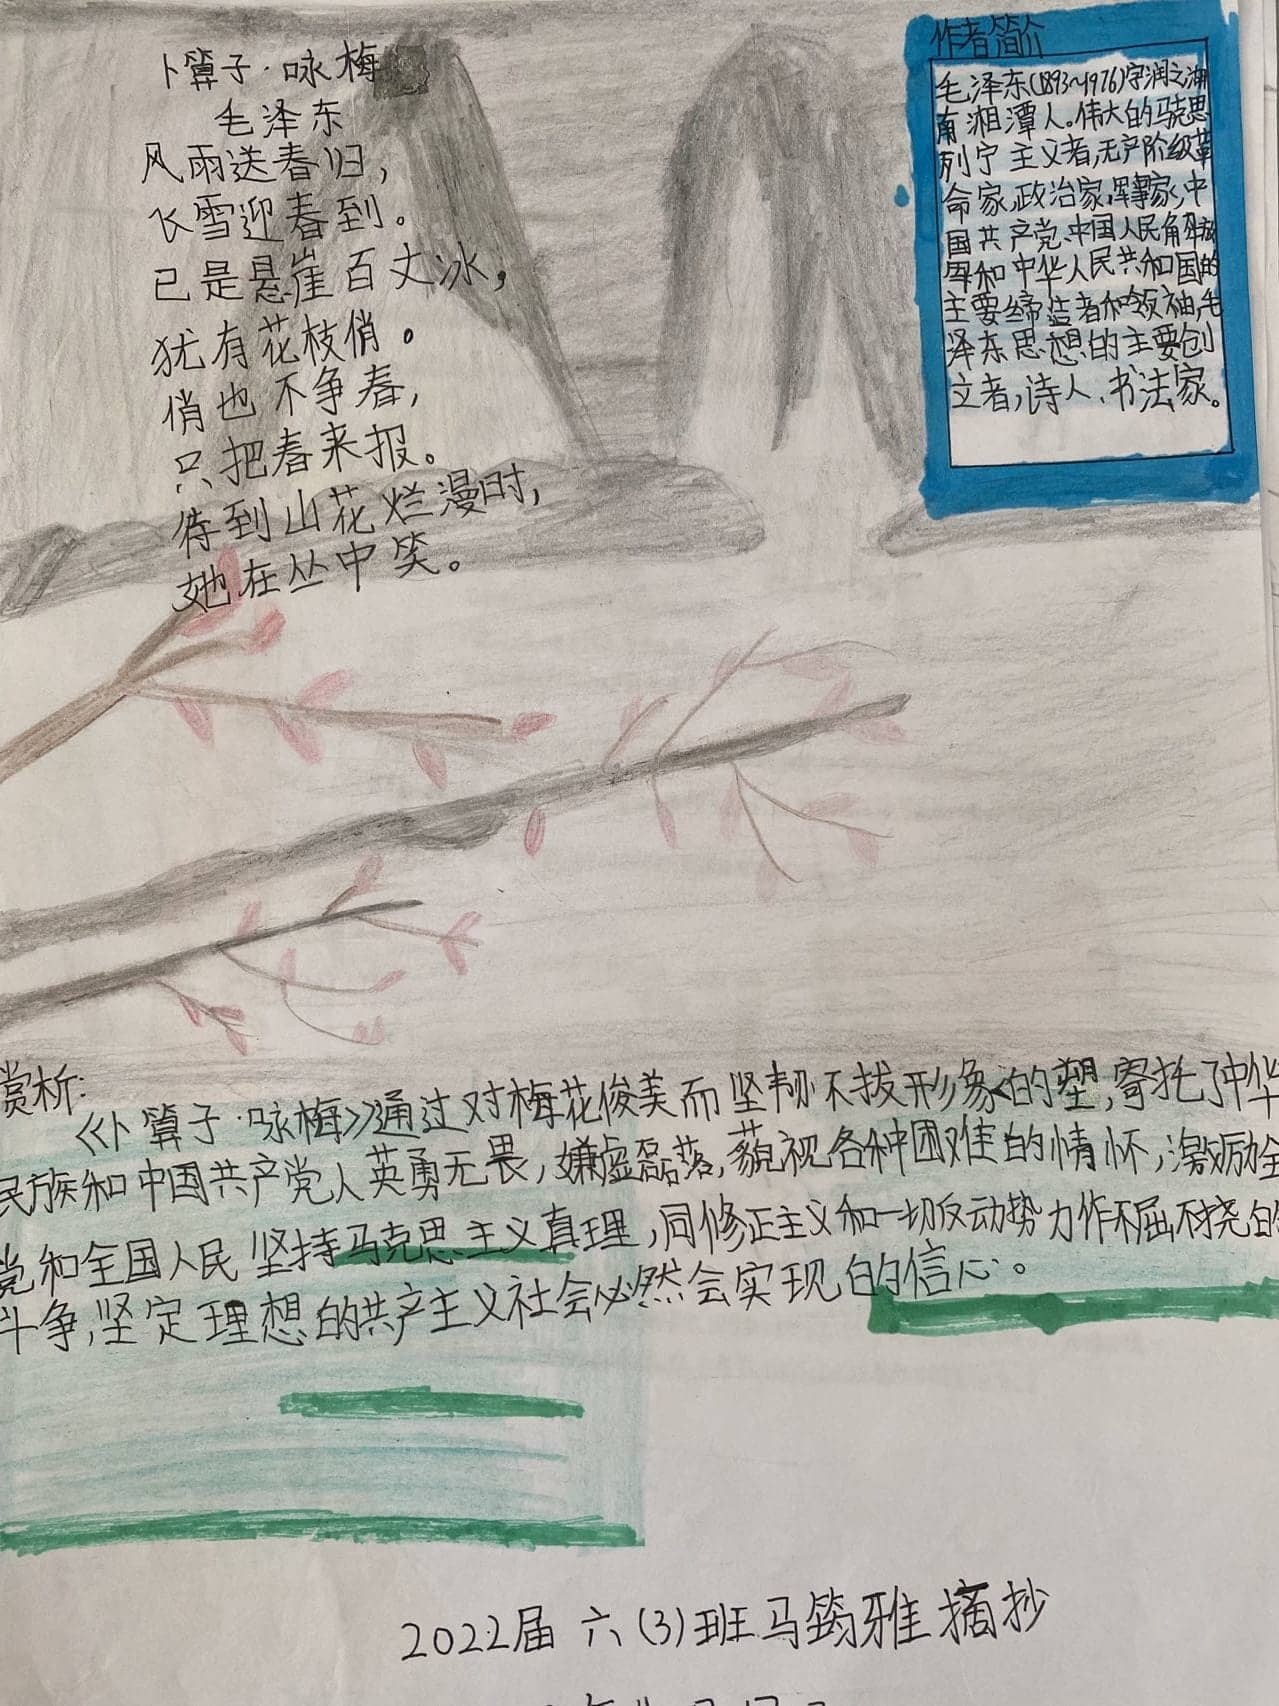 卜算子·咏梅
毛泽东
风雨送春归，
飞雪迎春到。
已是悬崖百丈冰，
犹有花枝俏。
俏也不争春，
只把春来报。
待到山花烂漫时，
她在丛中笑。
作者简介
毛泽东(1893~1976)字润之湖
南湘潭人。伟大的马克思
列宁主义者,无产阶级革
命家,政治家,军事家,中
国共产党、中国人民解放
军和中华人民共和国的
主要缔造者和领袖,毛
泽东思想的主要创
立者,诗人、书法家。
赏析:
《卜算子·咏梅》通过对梅花俊美而坚韧不拔形象的塑,寄托了中华
民族和中国共产党人英勇无畏,嫌虚磊落,藐视各种困难的情怀,激励全
党和全国人民坚持马克思主义真理,同修正主义和一切反动势力作不屈不挠的
斗争,坚定理想的共产主义社会必然会实现的信心。
2022届六(3)班马筠雅摘抄